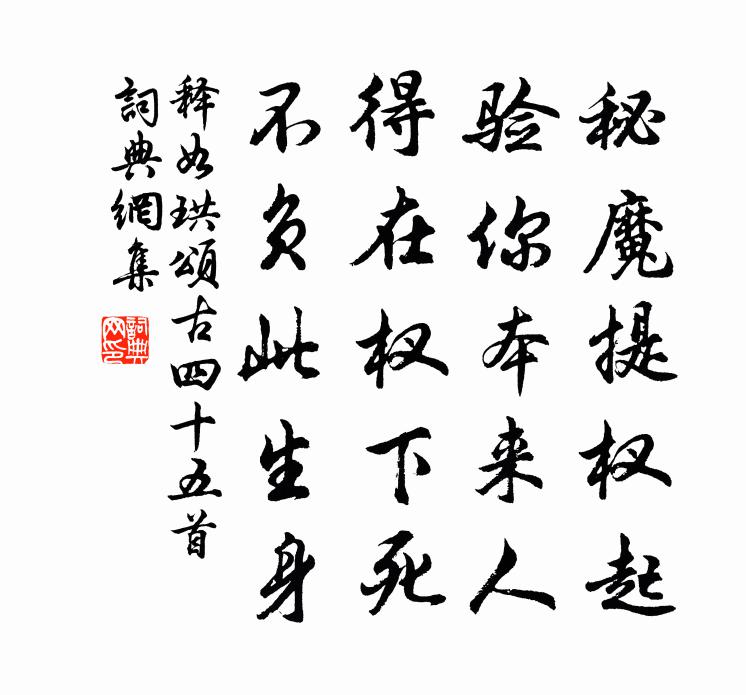 秘魔提权起
验你本来人
得在权下死
不负此生身
释如珙颂古四十五首
詞典網集
詞典网印